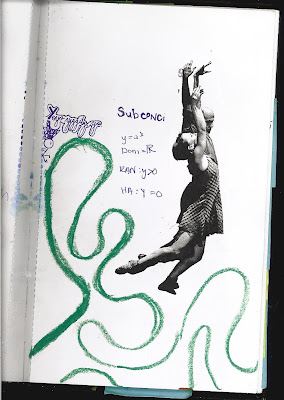 Subconci
y=aˣ
Dom=ℝ
RAN:y>0
HA:y=0